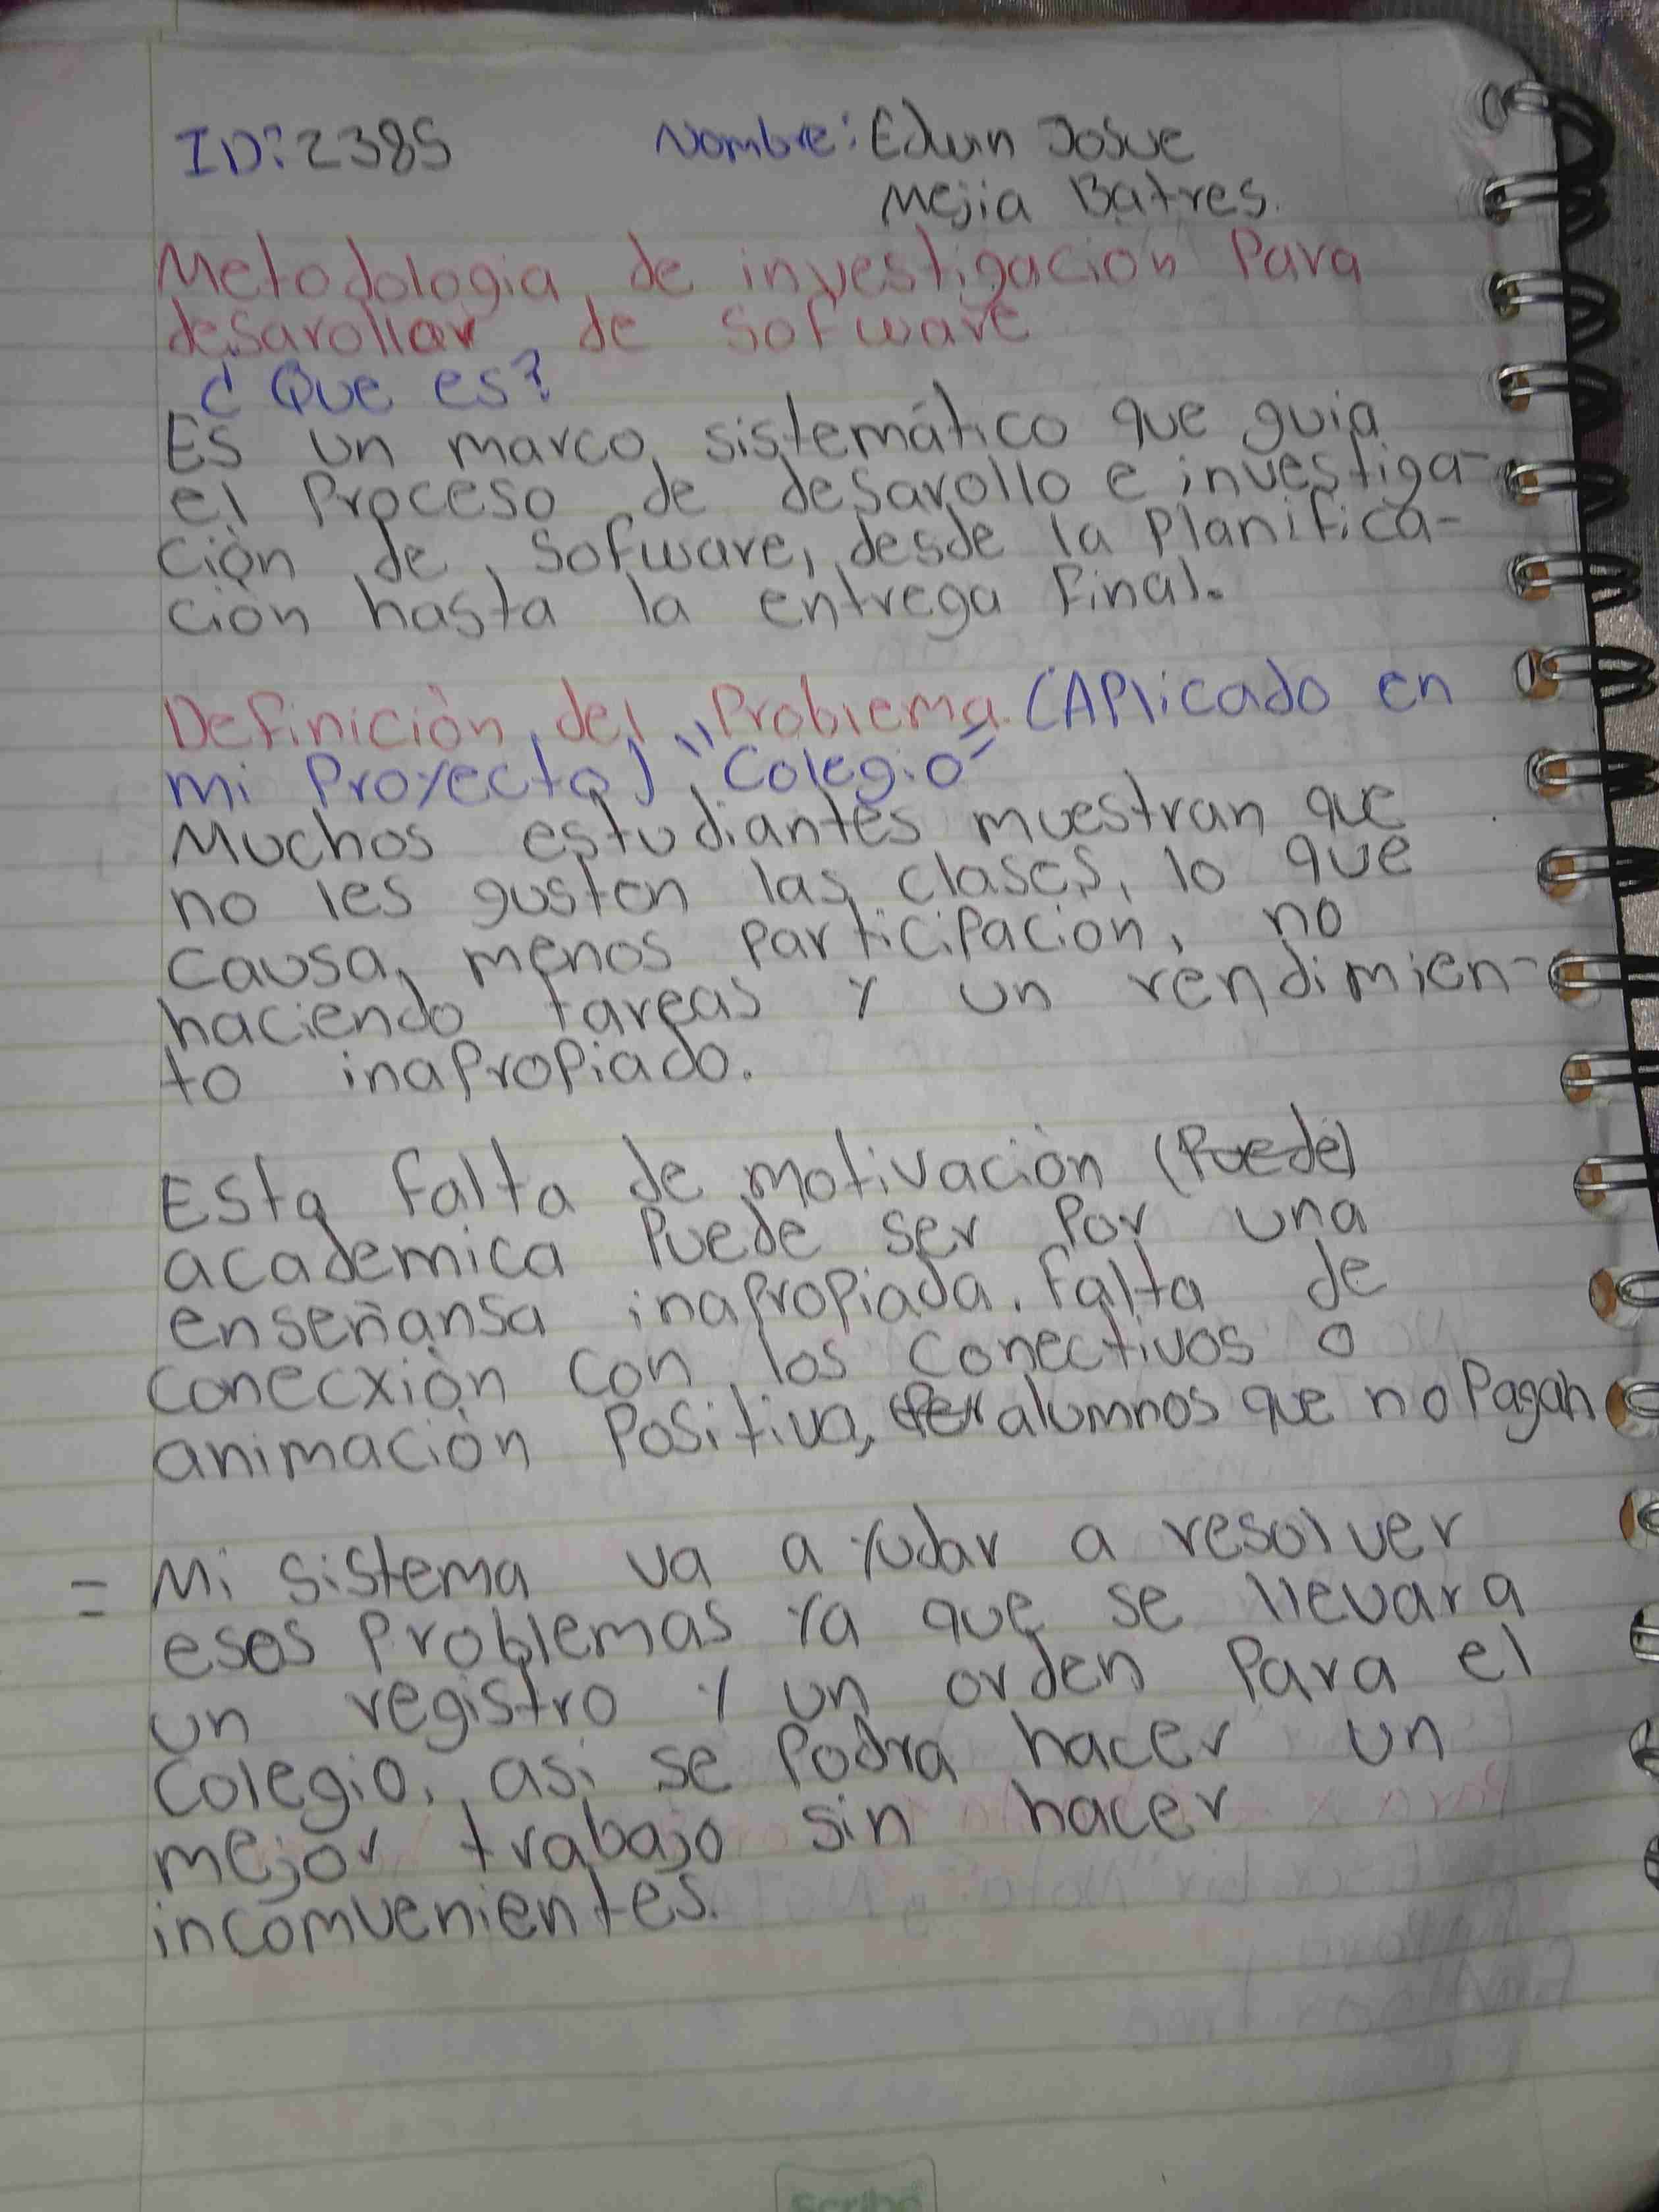 ID: 2385 Nombre: Edwin Josue
Mejia Batres.
Metodologia de investigación Para
desarollar de sofware
¿Que es?
Es un marco sistemático que guia
el Proceso de desarollo e investiga-
ción de sofware, desde la Planifica-
ción hasta la entrega Final.
Definición del Problema (APlicado en
mi Proyecto) "Colegio"
Muchos estudiantes muestran que
no les gusten las clases, lo que
causa, menos participacion, no
haciendo tareas y un rendimien-
to inapropiado.
Esta falta de motivación (Puede)
academica Puede ser Por una
enseñansa inapropiada, falta de
conecxión con los conectivos o
animación Positiva, alumnos que no Pagan
= Mi sistema va a yudar a resolver
esos Problemas ya que se llevara
un registro y un orden Para el
Colegio, asi se Podra hacer un
mejor trabajo sin hacer
incomvenientes.
Scribe